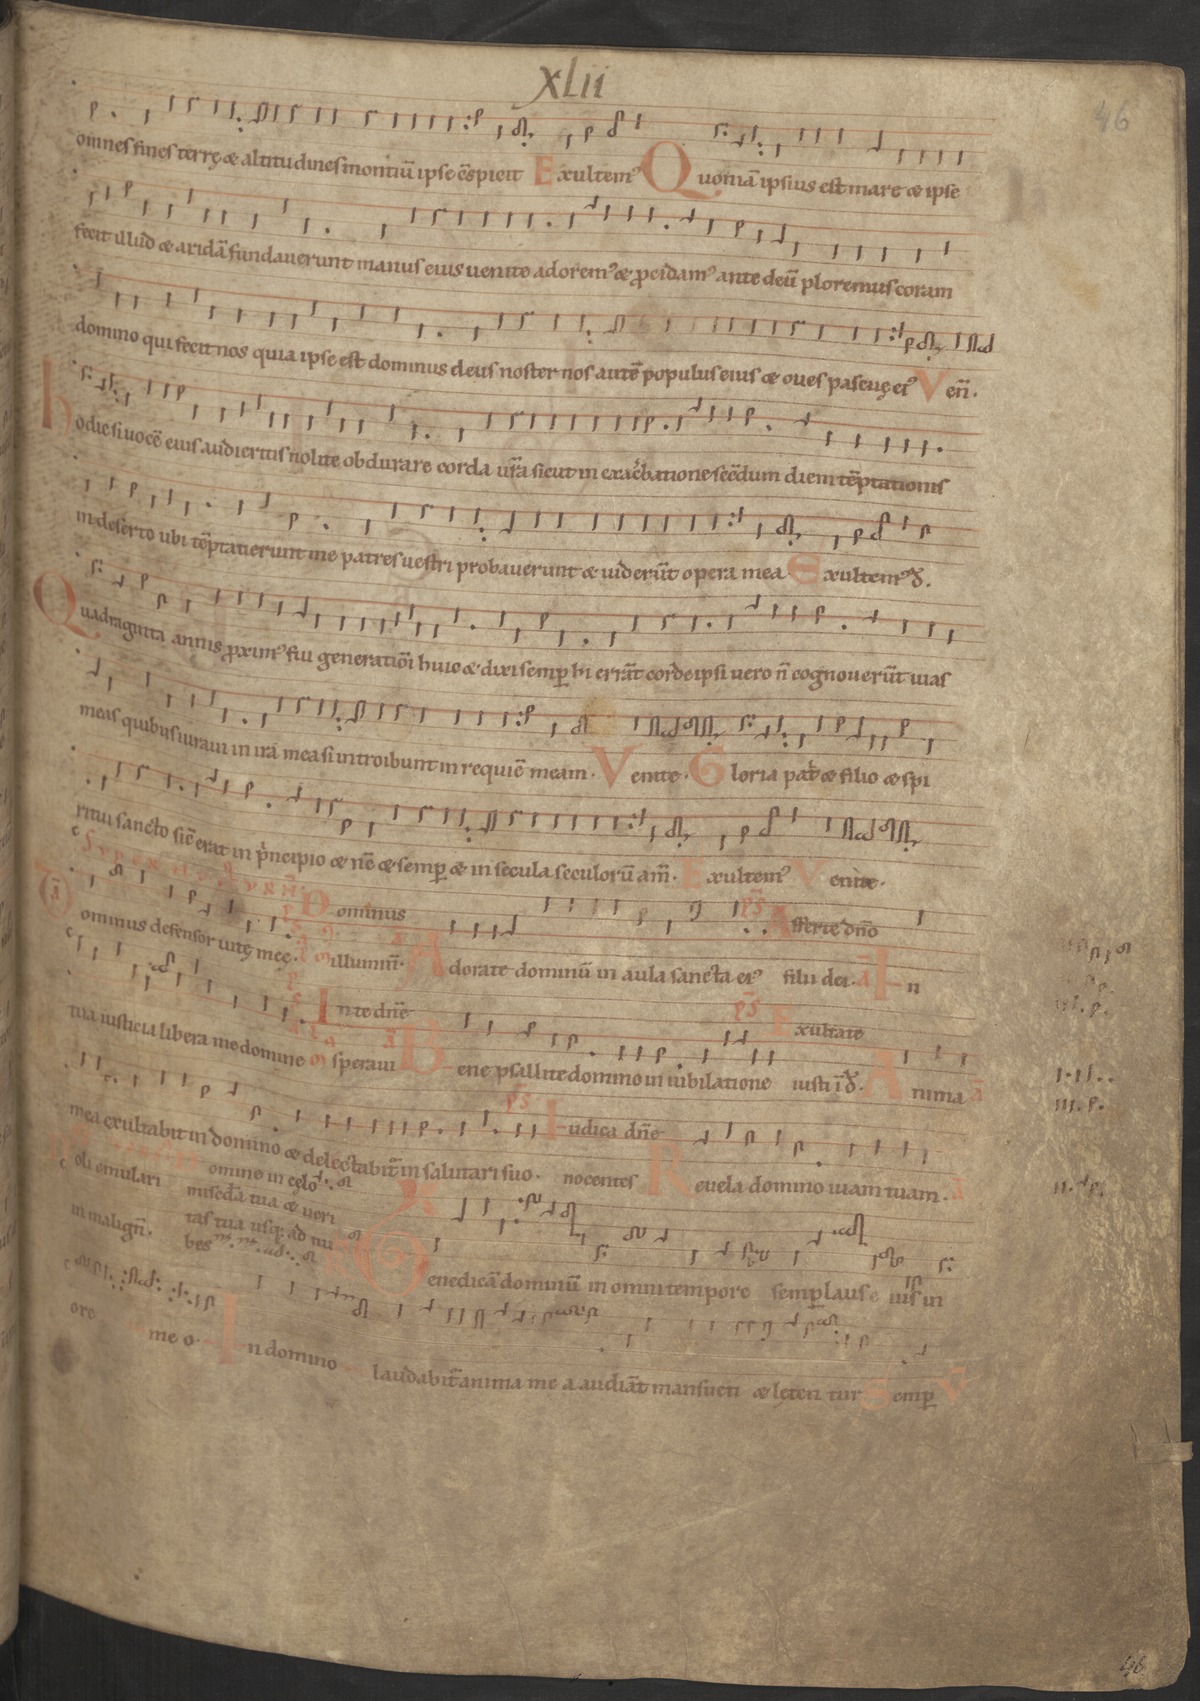 XLII
46
omnes fines terrę & altitudines montiū ipse cōspicit Exultem᾽ Quoniā ipsius est mare & ipse
fecit illud & aridā fundauerunt manus eius uenite adorem᾽ & ꝓcidam᾽ ante deū ploremus coram
domino qui fecit nos quia ipse est dominus deus noster nos autē populus eius & oues pascuę ei᾽ Ven̄.
hodie si uocē eius audieritis nolite obdurare corda ur̄a sicut in exac̄batione scēdum diem tēptationis
in deserto ubi tēptauerunt me patres uestri probauerunt & uiderūt opera mea Exultem᾽
Quadraginta annis ꝓxim᾽ fui generationi huic & dixi semp̱ hi errāt corde ipsi uero n̄ cognouerūt uias
meas quibus iuraui in irā mea si introibunt in requiē meam. Venite. Gloria pat̄ & filio & spi
ritui sancto sic̄ erat in pⁱncipio & nc̄ & semp̱ & in secula seculorū am̄. Exultem᾽ Venite.
Dominus Afferte dn̄o
Dominus defensor uitę meę. illumin̄. Adorate dominū in aula sancta ei᾽ filii dei. In
In te dn̄e Exultate
tua iusticia libera me domine speraui Bene psallite domino in iubilatione iusti ī Anima
Iudica dn̄e
mea exultabit in domino & delectabit᾽ in salutari suo. nocentes Reuela domino uiam tuam.
omine in cęlo
oli emulari misc̄dā tua & ueri
tas tua usq; ad nu
in malign̄. bes
Benedicā dominū in omni tempore semp̱ laus e ius in
ore me o. In domino laudabit᾽ anima me a audiāt mansueti & lęten tur Semp̱ V̄
46